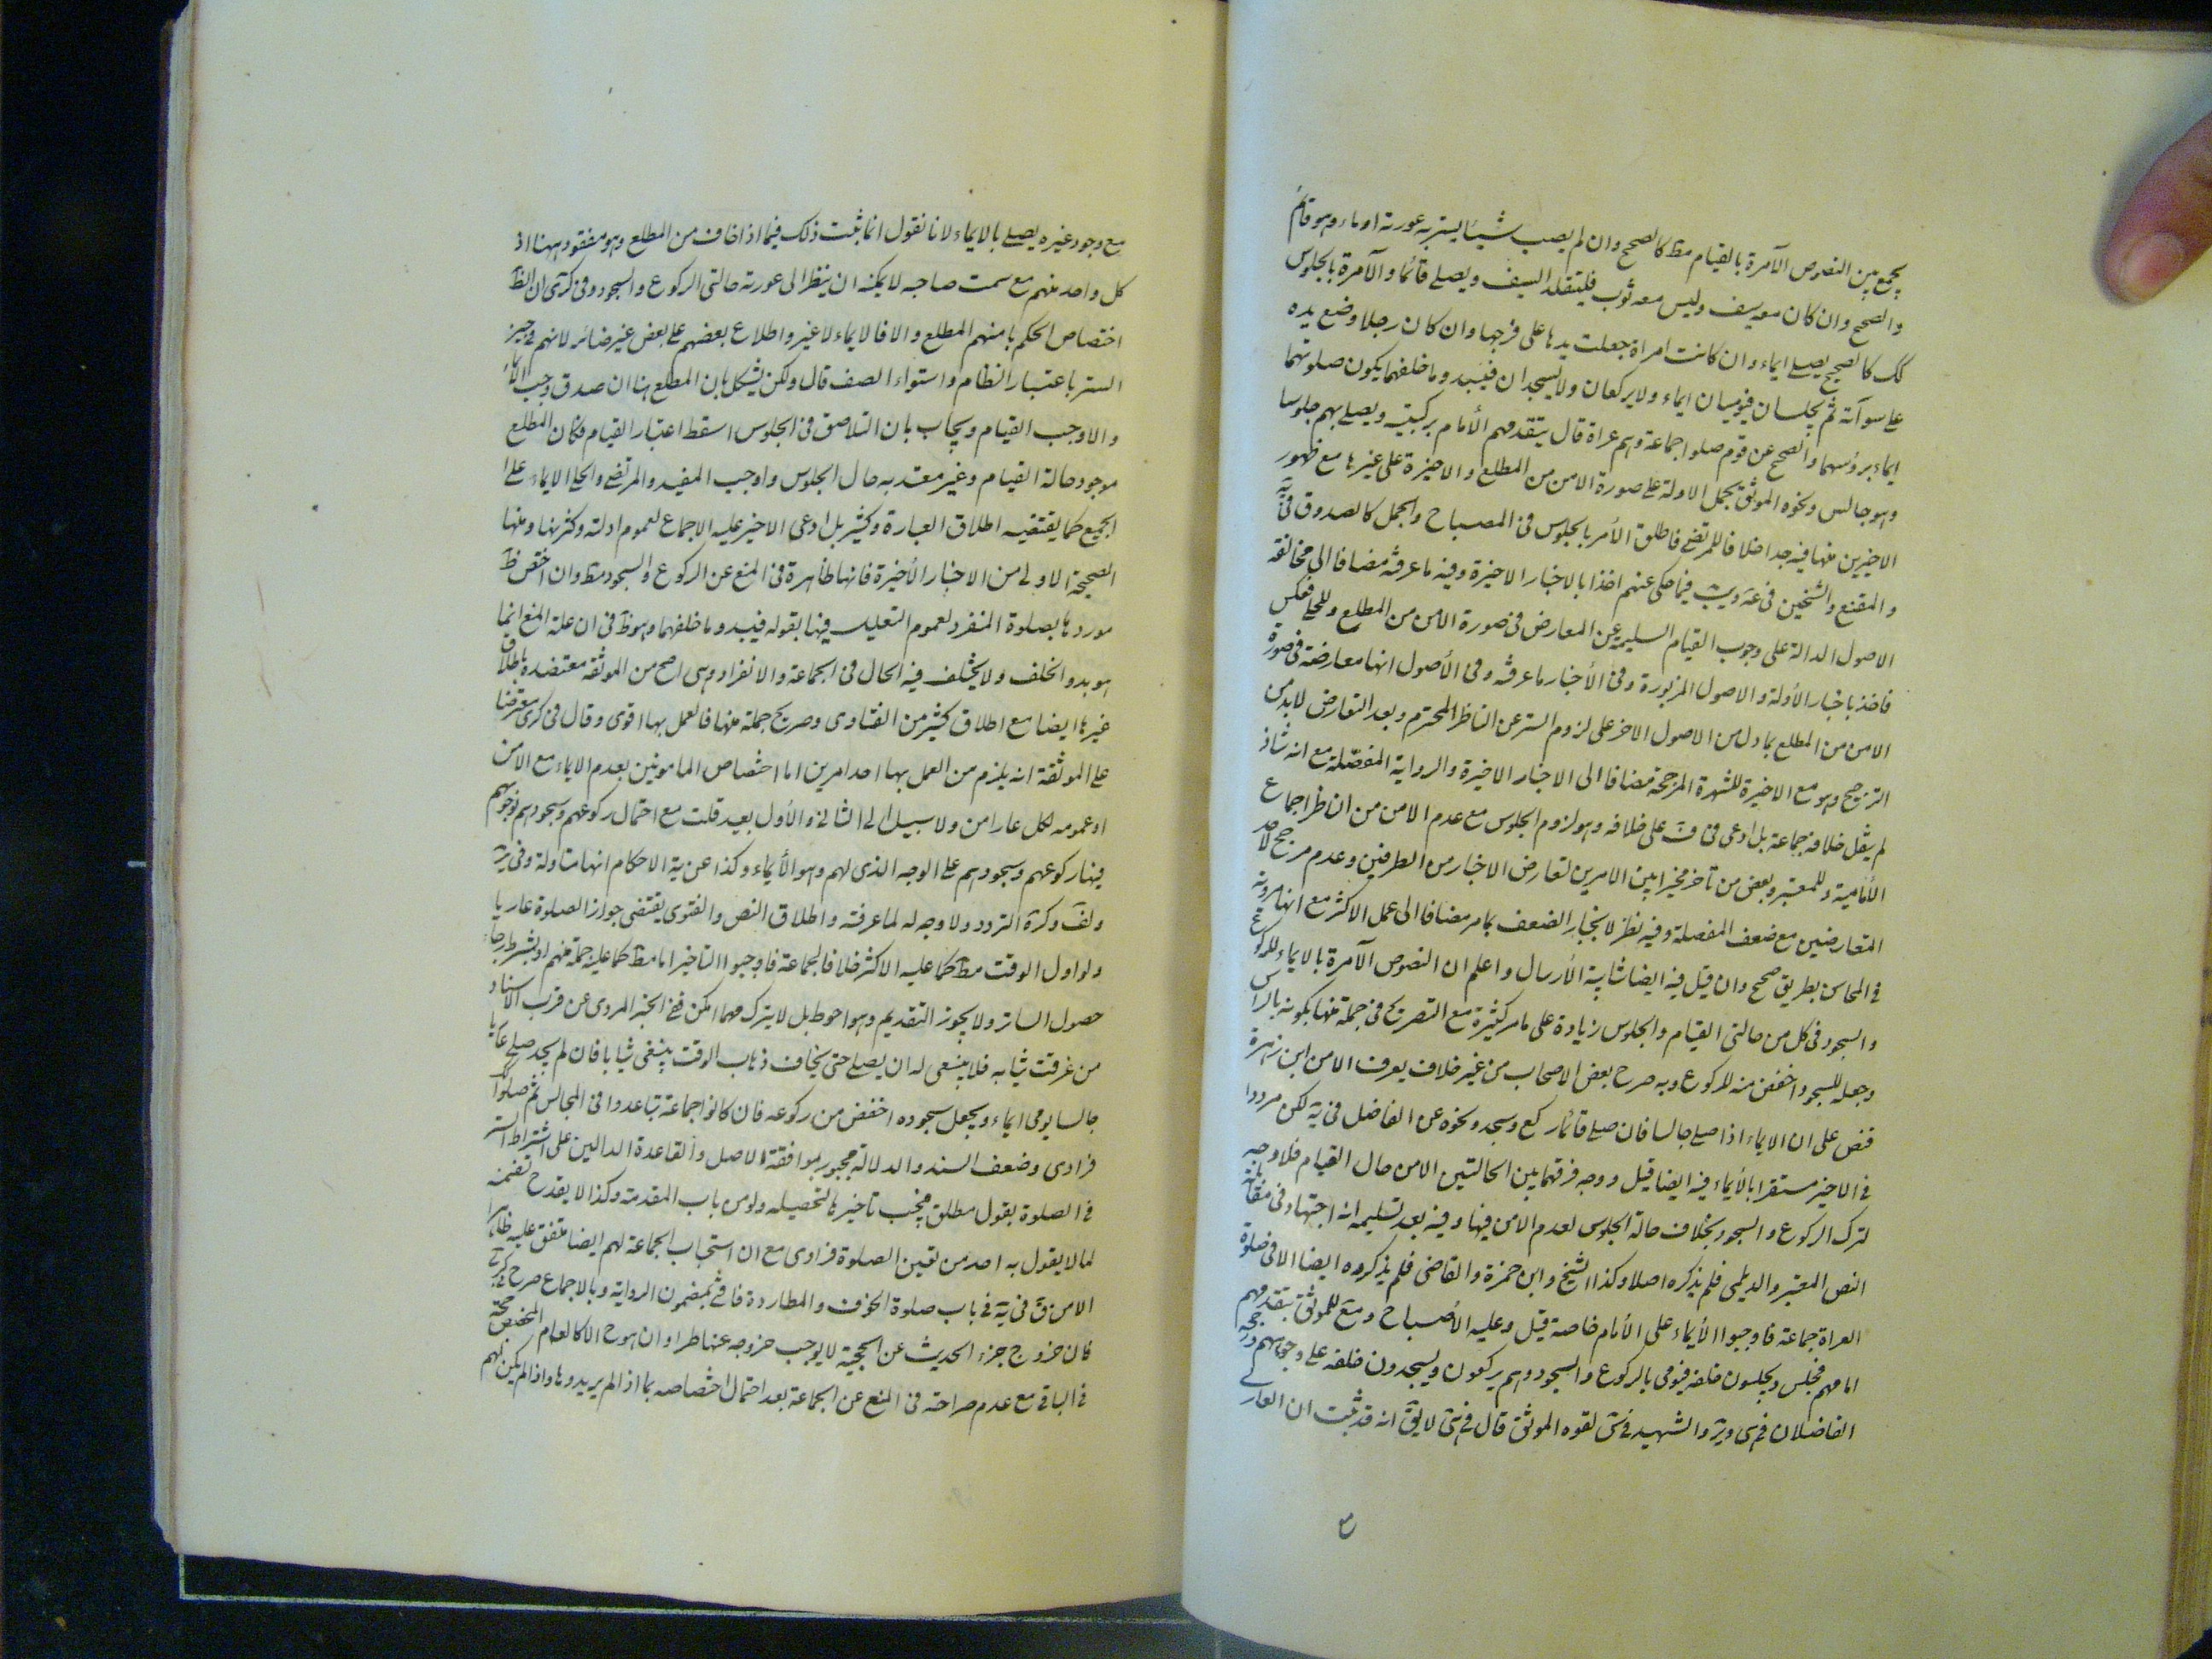 يجمع بين النصوص الآمرة بالقيام مط كالصحيح وان لم يصب شيئا يستر به عورته اوماء وهو قائم
والصحيح وان كان معه سيف وليس معه ثوب فليتقلد السيف ويصلي قائما والآمرة بالجلوس
كك كالصحيح يصلي ايماء وان كانت امراة جعلت يدها على فرجها وان كان رجلا وضع يده
على سوآته ثم يجلسان فيوميان ايماء ولا يركعان ولا يسجدان فيبدو ما خلفهما يكون صلوتهما
ايماء برؤسهما والصحيح عن قوم صلوا جماعة وهم عراة قال يتقدمهم الأمام بركبتيه ويصلي بهم جلوسا
وهو جالس ونحوه الموثق بحمل الاولة على صورة الامن من المطلع والاخيرة على غيرها مع ظهور
الاخيرين منها فيه جدا خلافا للمرتضى فاطلق الأمر بالجلوس في المصباح والجمل كالصدوق في يه
والمقنع والشيخين في عه ويب فيما حكي عنهم اخذا بالاخبار الاخيرة وفيه ما عرفته مضافا الى مخالفة
الاصول الدالة على وجوب القيام السليمة عن المعارض في صورة الامن من المطلع وللحلي فعكس
فاخذ باخبار الأولة والاصول المزبورة وفي الأخبار ما عرفته وفي الأصول انها معارضة في صورة
الامن من المطلع بما دل من الاصول الاخر على لزوم الستر عن الناظر المحترم وبعد التعارض لابد من
الترجيح وهو مع الاخيرة للشهرة المرجحة مضافا الى الاخبار الاخيرة والرواية المفصلة مع انه شاذ
لم ينقل خلافه جماعة بل ادعى في ف على خلافه وهو لزوم الجلوس مع عدم الامن من الناظر اجماع
الأمامية وللمعتبر وبعض من تاخر مخيرا بين الامرين لتعارض الاخبار من الطرفين وعدم مرجح لاحد
المتعارضين مع ضعف المفصلة وفيه نظر لانجبار الضعف بما مر مضافا الى عمل الاكثر مع انها مروية
في المحاسن بطريق صحيح وان قيل فيه ايضا شايبة الأرسال واعلم ان النصوص الآمرة بالايماء للركوع
والسجود في كل من حالتي القيام والجلوس زيادة على ما مر كثيرة مع التصريح في جملة منها بكونه بالراس
وجعله للسجود اخفض منه للركوع وبه صرح بعض الاصحاب من غير خلاف يعرف الا من ابن زهرة
فنص على ان الايماء اذا صلى جالسا فان صلى قائما ركع وسجد ونحوه عن الفاضل في يه لكن مرددا
في الاخير مستقرا بالأيماء فيه ايضا قيل ووجه فرقهما بين الحالتين الامن حال القيام فلا وجه
لترك الركوع والسجود بخلاف حالة الجلوس لعدم الامن فيها وفيه بعد تسليمه انه اجتهاد في مقابلة
النص المعتبر والديلمي فلم يذكره اصلا وكذا الشيخ وابن حمزة والقاضي فلم يذكروه ايضا الا في صلوة
العراة جماعة فاوجبوا الأيماء على الأمام خاصة قيل وعليه الأصباح ومع للموثق يتقدمهم
امامهم فيجلس ويجلسون خلفه فيومي بالركوع والسجود وهم يركعون ويسجدون خلفه على وجوههم ورجحه
الفاضلان في هى ويز والشهيد في س لقوه الموثق قال في هى لا يق انه قد ثبت ان العاري
مع وجود غيره يصلي بالايماء لانا نقول انما ثبت ذلك فيما اذا خاف من المطلع وهو مفقود ههنا اذ
كل واحد منهم مع سمت صاحبه لا يمكنه ان ينظر الى عورته حالتي الركوع والسجود وفي كرى ان الظ
اختصاص الحكم بامنهم المطلع والا فالايماء لا غير واطلاع بعضهم على بعض غير ضائر لانهم في حيز
الستر باعتبار النظام واستواء الصف قال ولكن يشكل بان المطلع هنا ان صدق وجب الايماء
والا وجب القيام ويجاب بان التلاصق في الجلوس اسقط اعتبار القيام فكان المطلع
موجود حالة القيام وغير معتد به حال الجلوس واوجب المفيد والمرتضى والحلي الايماء على
الجميع كما يقتضيه اطلاق العبارة وكثير بل ادعى الاخير عليه الاجماع لعموم ادلته وكثرتها ومنها
الصحيحة الاولى من الاخبار الأخيرة فانها ظاهرة في المنع عن الركوع والسجود مط وان اختص ظ
موردها بصلوة المنفرد لعموم التعليل فيها بقوله فيبدو ما خلفهما وهو ظ في ان علة المنع انما
هو بدو الخلف ولا يختلف فيه الحال في الجماعة والانفراد وهي اصح من الموثقة معتضدة باطلاق
غيرها ايضا مع اطلاق كثير من الفتاوى وصريح جملة منها فالعمل بها اقوى وقال في كرى معترضا
على الموثقة انه يلزم من العمل بها احد امرين اما اختصاص المامونين بعدم الايماء مع الامن
او عمومه لكل عار امن ولا سبيل الى الثاني والأول بعيد قلت مع احتمال ركوعهم وسجودهم بوجوههم
فيها ركوعهم وسجودهم على الوجه الذي لهم وهو الأيماء وكذا عن ية الاحكام انها متاولة وفي ير
ولف وكره التردد ولا وجه له لما عرفته واطلاق النص والفتوى يقتضي جواز الصلوة عاريا
ولو اول الوقت مط كما عليه الاكثر خلافا لجماعة فاوجبوا التاخير اما مط كما عليه جملة منهم او بشرط رجاء
حصول الساتر ولا يجوز التقديم وهو احوط بل لا يترك مهما امكن فحي الخبر المروي عن قرب الاسناد
من غرقت ثيابه فلا ينبغي له ان يصلي حتى يخاف ذهاب الوقت يبتغي ثيابا فان لم يجد صلى عاريا
جالسا يومي ايماء ويجعل سجوده اخفض من ركوعه فان كانوا جماعة تباعدوا في المجالس ثم صلوا
فرادى وضعف السند والدلالة مجبور بموافقة الاصل والقاعدة الدالين على اشتراط الستر
في الصلوة بقول مطلق فيجب تاخيرها لتحصيله ولو من باب المقدمة وكذا لا يقدح تضمنه
لما لا يقول به احد من تعين الصلوة فرادى مع ان استحباب الجماعة لهم ايضا متفق عليه ظاهرا
الا من ق في يه في باب صلوة الخوف والمطاردة فافتى بمضمون الرواية وبالاجماع صرح في كرى
فان خروج جزء الحديث عن الحجية لا يوجب خروجه عنها طرا وان هو ح الا كالعام المخصص حجة
في الباقي مع عدم صراحته في المنع عن الجماعة بعد احتمال اختصاصه بما اذا لم يريدوها واذا لم يكن لهم